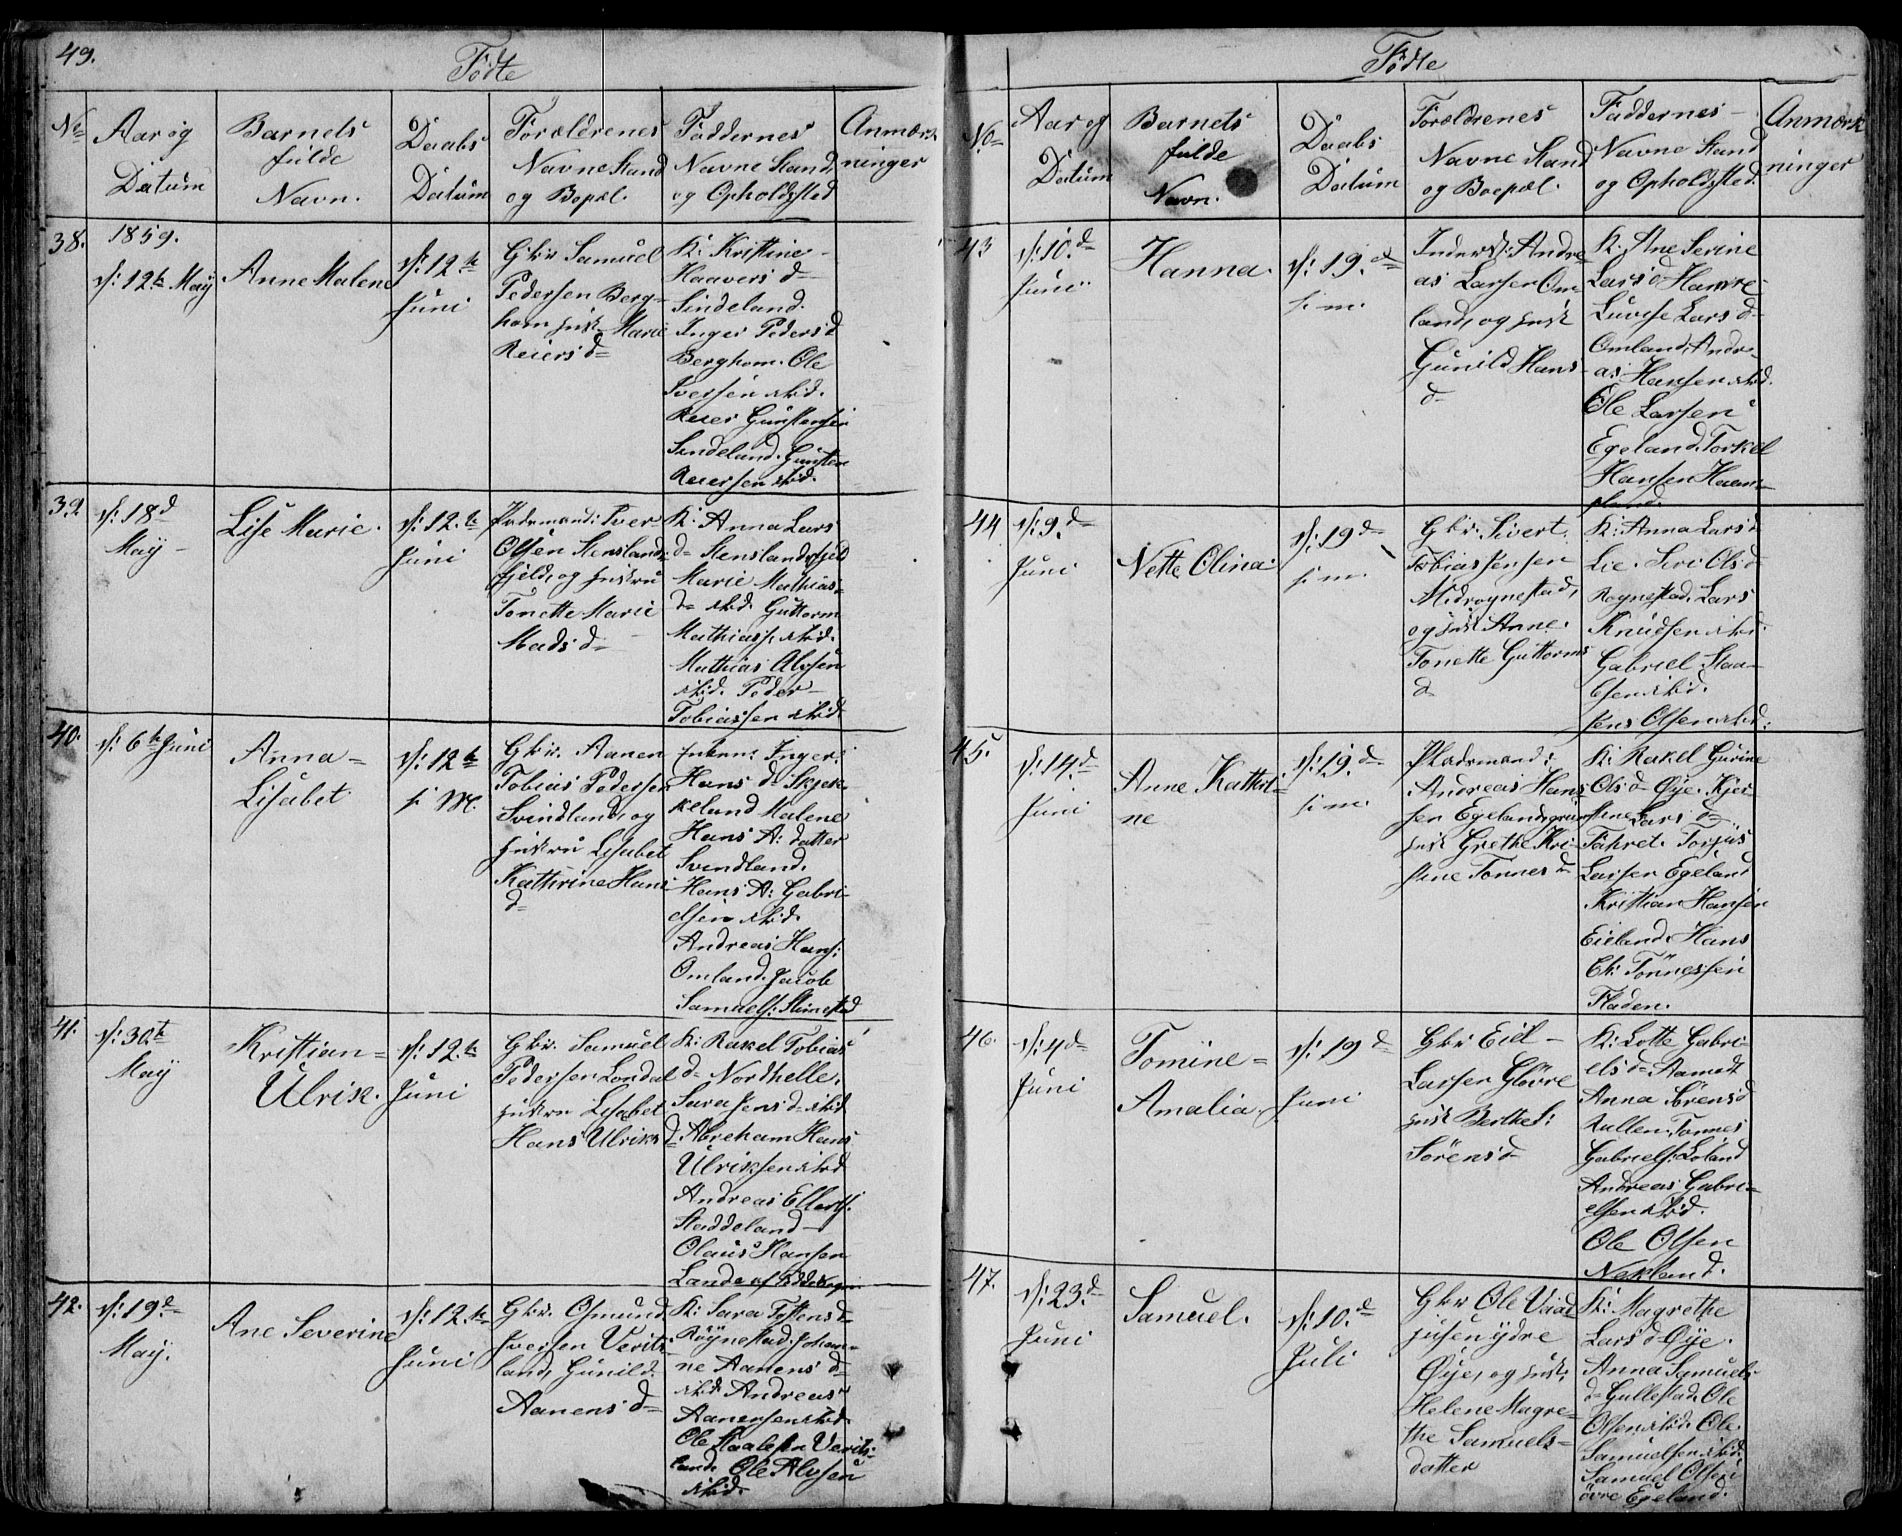 49.
Födte
No
Aar og
Datum
Barnets
fulde
Navn.
Daabs
Datum
Forældrenes
Navne Stand
og Bopæl.
Faddernes
Navne Stand,
og Opholdsted
Anmærk
ninger
38.
1859.
d: 12te May
Anne Malene
d: 12te
Juni
Gkr. Samuel
Pedersen Berg-
hom hust. Marie
Reiersd
K: Kristine
Haavers d
Sindeland.
Inger Peders d
Berghom. Ole
Iversen
Reier Gunstensen
Sindeland. Gunsten
Reiersen
39.
d: 18d
May
Lise Marie.
d: 12te
Juni
Pladsmand: Iver
Olsen Stensland-
fjeld, og hustru
Tonette Marie
Mads d
K: Anna Lars
d Stenslandsfjeld
Marie Mathias
d Guttorm
Mathiass.
Mathias Alvsen
Peder
Tobiassen
40.
d: 6te Juni
Anna
Lisabet
d: 12te
s. M.
Gkr. Aanen
Tobias Pedersen
Svindland, og
hustru Lisabet
Kathrine Hans
d
Inger
Hans d Skjek-
keland Malene
Hans A: datter
Svindland.
Hans A: Gabri-
elsen
Andreas Hans:
Omland. Jacob
Samuels:
41.
d: 30te
May
Kristian
Ulrik.
d: 12te
Juni
Gkr. Samuel
Pedersen Londal
hustru Lisabet
Hans Ulriks d
K: Rakel Tobias
d Nordhelle.
Sara Jens d
Abreham Hans
Ulriksen
Andreas Ellefs:
Staddeland
Olaus Hansen
Lande
42.
d: 19de
May.
Ane Severine
d: 12te
Juni
Gkr. Osmund
Iversen Verits-
land, Gunild
Aanens d
K: Sara Tostens d
Röynestad. Johan-
ne Aanens d
Andreas
Aanensen
Ole Staalesen Verits-
land. Ole Alvsen
Födte
No
Aar og
Datum
Barnets
fulde
Navn.
Daabs
Datum
Forældrenes
Navne Stand
og Boepæl.
Faddernes
Navne Stand
og Opholdsted.
Anmærk
ninger
43
d: 10de
Juni
Hanna.
d: 19de
s: m.
Inderst: Andre-
as Larsen Om-
land, og hust
Gunild Hans
d
K: Ane Serine
Lars d
Luvise Lars d
Omland. Andre-
as Hansen
Ole Larsen
Egeland. Torkel
Hansen
44
d: 9de
Juni
Nette Olina.
d: 19de
s: m.
Gkr. Sivert
Tobias Jensen
Midrognestad,
og hust Anne
Tonette Guttorms
d
K: Anna Lars d
Lie. Siri Ols d
Rognestad. Lars
Knudsen
Gabriel Staa-
lesen
Jens Olsen
45.
d: 14de
Juni
Anne Kathri-
ne
d: 19de
s: m.
Pladsmand:
Andreas Han-
sen Egeland
hust Grethe Kri-
stine Tönnes d
K: Rakel Gurine
Ols d Öye. Kjer-
stine Lars d
Fahret. Torjus
Larsen Egeland
Kristian Hansen
Eieland. Hans
Tönnessen
Fladen.
46.
d: 4de
Juni
Tomine
Amalia.
d: 19de
Juni
Gkr Eil-
Larsen Glövre
hust Berthe S:
Sörens d
K: Lotte Gabri-
els d Aamot
Anna Sörens d
Tönnes
Gabriels: Loland
Andreas Gabri-
elsen
Ole Olsen
Nakland.
47.
d: 23de
Juni
Samuel.
d: 10de
Juli
Gkr Ole Vaal-
jusen ydre
Öye, og hust
Helene Magre-
the Samuels-
datter
K: Magrethe
Lars d Öye.
Anna Samuels
d Gullestad. Ole
Olsen Ole
Samuelsen
Samuel Olsen
övre Egeland.